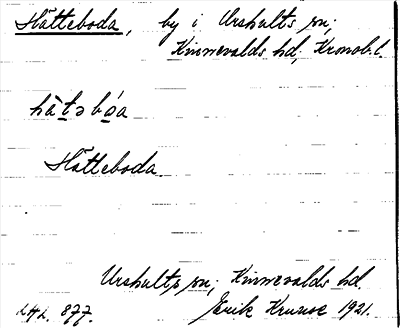 Hätteboda, by i Urshults sn;
Kinnevalds hd, Kronob. l.
hàtəbóa
Hätteboda.
Urshults sn; Kinnevalds hd.
877. Erik Kruuse 1921.